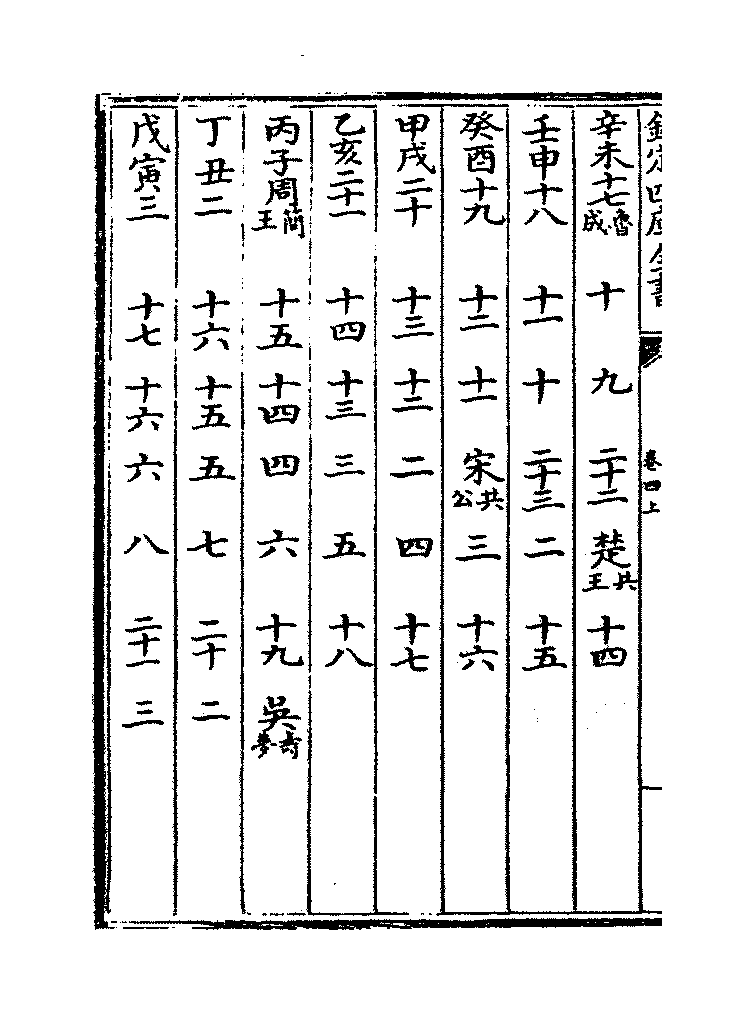 欽定四庫全書 卷四上
辛未十七魯成 十 九 二十二 楚共王 十四
壬申十八 十一 十 二十三 二 十五
癸酉十九 十二 十一 宋共公 三 十六
甲戌二十 十三 十二 二 四 十七
乙亥二十一 十四 十三 三 五 十八
丙子周簡王 十五 十四 四 六 十九 吳壽夢
丁丑二 十六 十五 五 七 二十 二
戊寅三 十七 十六 六 八 二十一 三